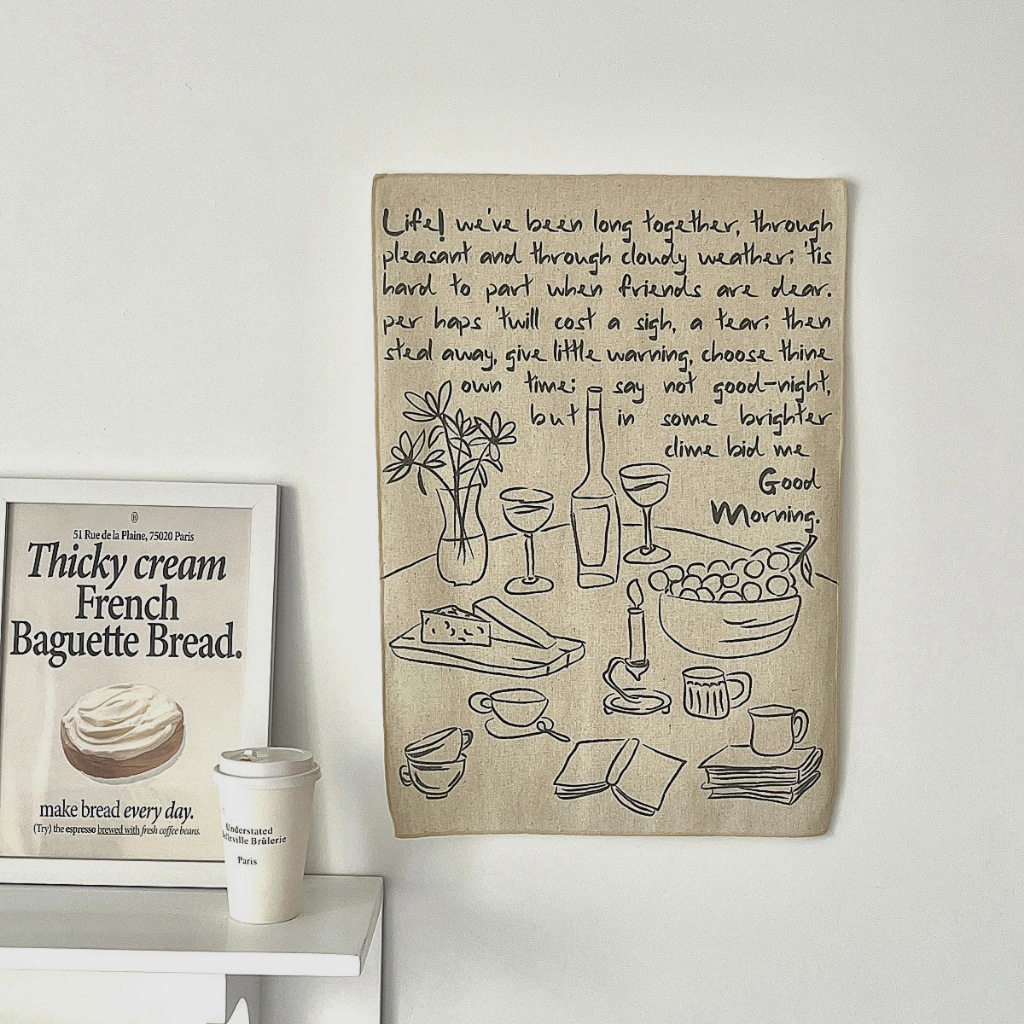 Life! we've been long together, through
pleasant and through cloudy weather; 'tis
hard to part when friends are dear.
per haps 'twill cost a sigh, a tear; then
steal away, give little warning, choose thine
own time; say not good-night,
but in some brighter
clime bid me
Good
Morning.
®
51 Rue de la Plaine, 75020 Paris
Thicky cream
French
Baguette Bread.
make bread every day.
(Try) the espresso brewed with fresh coffee beans.
Understated
Belleville Brûlerie
Paris